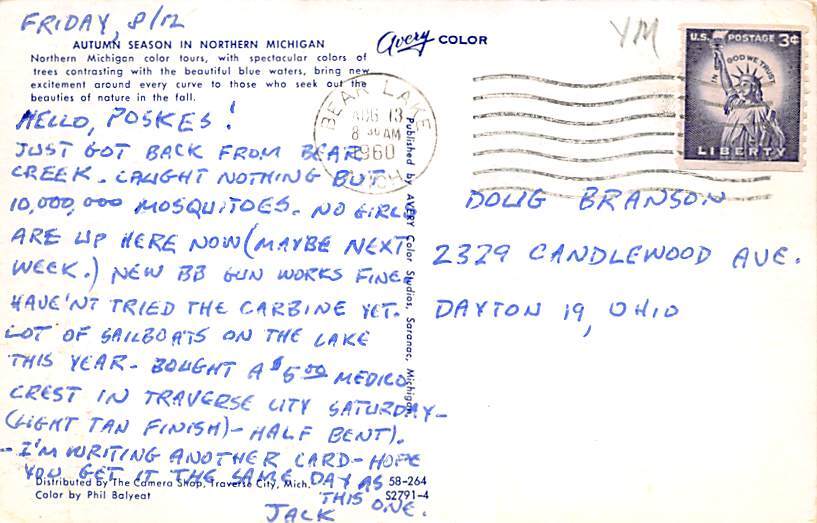 FRIDAY, 8/12
AUTUMN SEASON IN NORTHERN MICHIGAN
Northern Michigan color tours, with spectacular colors of
trees contrasting with the beautiful blue waters, bring new
excitement around every curve to those who seek out the
beauties of nature in the fall.
HELLO, POSKES!
JUST GOT BACK FROM BEAR
CREEK. CAUGHT NOTHING BUT
10,000,000 MOSQUITOES. NO GIRLS
ARE UP HERE NOW (MAYBE NEXT
WEEK.) NEW BB GUN WORKS FINE.
HAVE'NT TRIED THE CARBINE YET.
LOT OF SAILBOATS ON THE LAKE
THIS YEAR- BOUGHT A $5.00 MEDICO
CREST IN TRAVERSE CITY SATURDAY-
(LIGHT TAN FINISH)- HALF BENT).
- I'M WRITING ANOTHER CARD- HOPE
YOU GET IT THE SAME DAY AS
THIS ONE.
JACK
Distributed by The Camera Shop, Traverse City, Mich.
Color by Phil Balyeat
58-264
S2791-4
Avery COLOR
Published by AVERY Color Studios, Saranac, Michigan
YM
BEAR LAKE
AUG 13
8 30 AM
1960
MICH
U.S. POSTAGE 3¢
IN GOD WE TRUST
LIBERTY
DOUG BRANSON
2329 CANDLEWOOD AVE.
DAYTON 19, OHIO